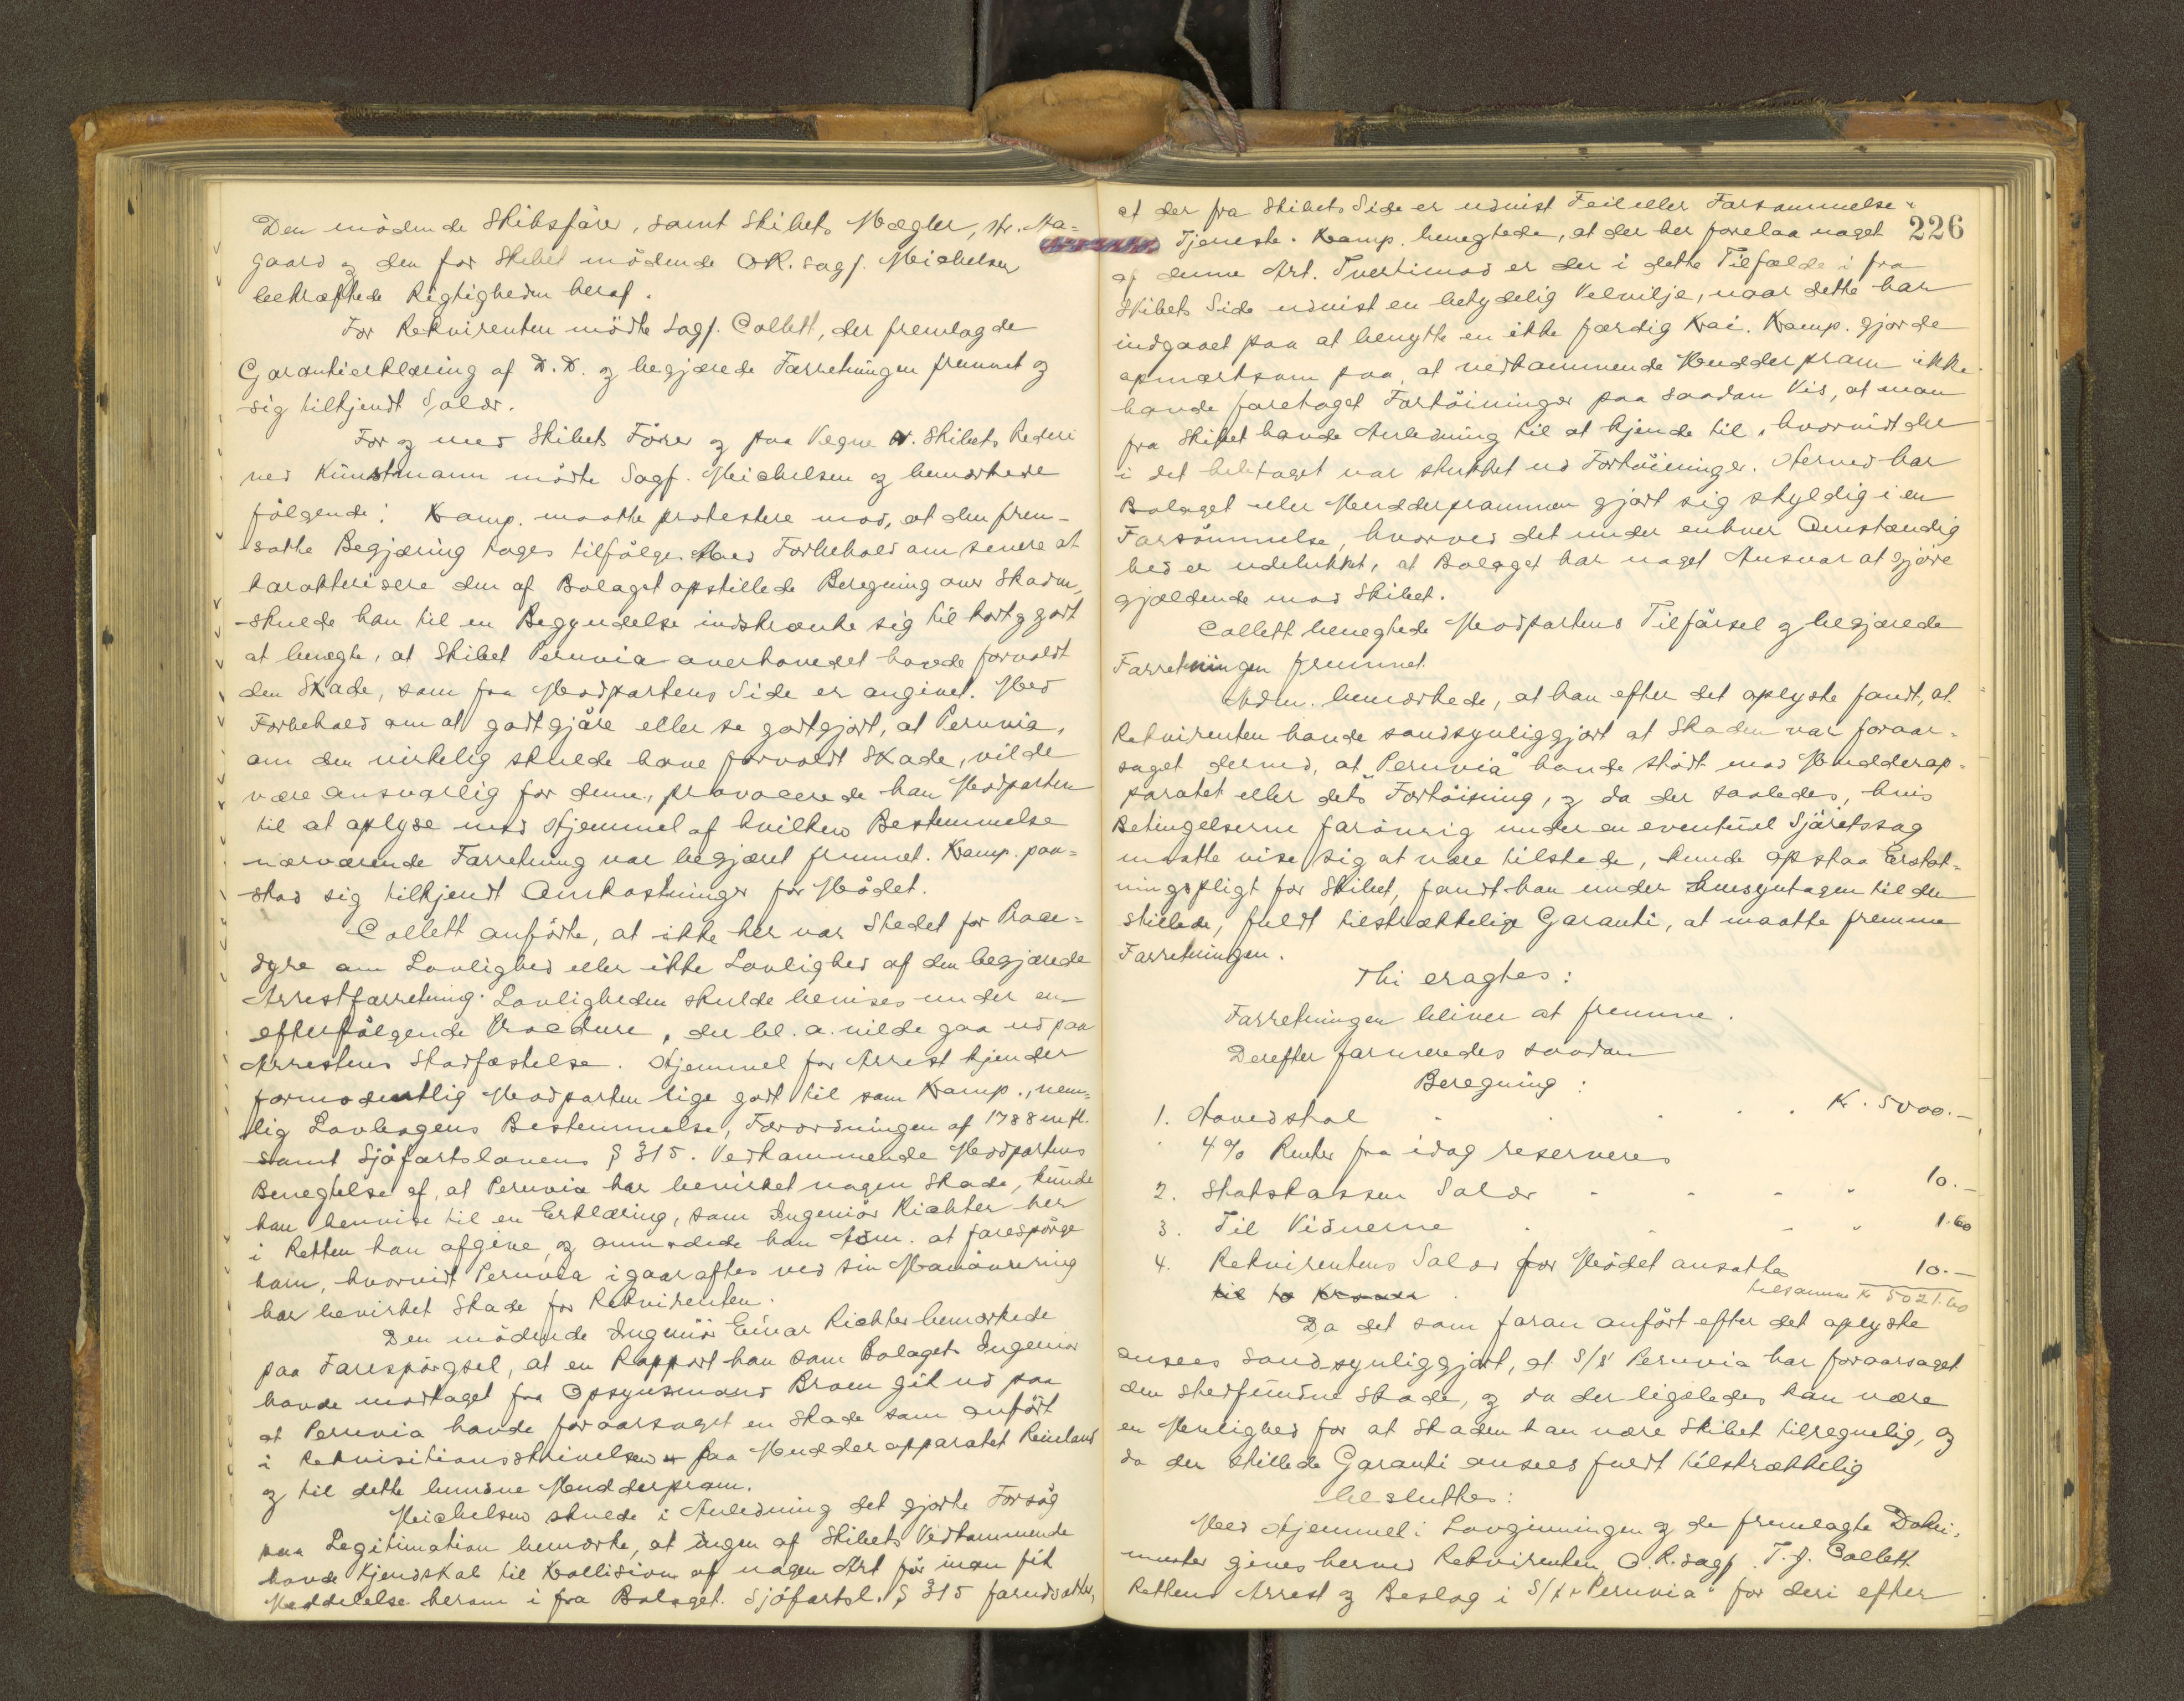 Den mödende Skibsförer, samt Skibets Mægler, Hr. Aa=
gaard og den for Skibet mödende OR. sagf. Michelsen
bekræftede Rigtigheden heraf.
For Rekvirenten mödte Sagf. Collett, der fremlagde
Garantierklæring af D. D. og begjærede Forretningen fremmet og
sig tilkjendt Salær.
For og med Skibets Förer og paa Vegne Skibets Rederi
ved Künstmann mödte Sagf. Michelsen og bemærkede
fölgende: Komp. maatte protestere mod, at den frem-
satte Begjæring tages tilfölge. Med Forbehold om senere at
karakterisere den af Bolaget opstillede Beregning over Skaden,
skulde han til en Begyndelse indskrænke sig til kort og godt
at benægte, at Skibet Peruvia overhovedet havde forvoldt
den Skade, som fra Modpartens Side er angivet. Med
Forbehold om at godtgjöre eller se godtgjort, at Peruvia,
om den virkelig skulde have forvoldt Skade, vilde
være ansvarlig for denne, provocerede han Modparten
til at oplyse med Hjemmel af hvilken Bestemmelse
nærværende Forretning var begjæret fremmet. Komp. paa=
stod sig tilkjendt Omkostninger for Mödet.
Collett anförte, at ikke her var Stedet for Proce=
dyre om Lovlighed eller ikke Lovlighed af den begjærede
Arrestforretning. Lovligheden skulde bevises under en
efterfölgende Procedure, der bl. a. vilde gaa ud paa
Arrestens Stadfæstelse. Hjemmel for Arrest kjender
formodentlig Modparten lige godt til som Komp., nem=
lig Lovbogens Bestemmelse, Forordningen af 1788 mfl.
samt Sjöfartslovens § 315. Vedkommende Modpartens
Benegtelse af, at Peruvia har bevirket nogen Skade, kunde
han henvise til en Erklæring, som Ingeniör Richter her
i Retten kan afgive, og anmodede han Adm. at forespörge
ham, hvorvidt Peruvia igaaraftes ved sin Manövrering
har bevirket Skade for Rekvirenten.
Den mödende Ingeniör Einar Richter bemærkede
paa Forespörgsel, at en Rapport han som Bolagets Ingeniör
havde modtaget fra Opsynsmand Broen gik ud paa
at Peruvia havde foraarsaget en Skade som anfört
i Rekvisitionsskrivelsen paa Mudderapparatet Reinland
og til dette bundne Mudderpram.
Michelsen skulde i Anledning det gjorte Forsög
paa Legitimation bemærke, at ingen af Skibets Vedkommende
havde Kjendskab til Kollision af nogen Art för man fik
Meddelelse herom i fra Bolaget. Sjöfartsl. § 315 forudsætter,
226
at der fra Skibets Side er udvist Feil eller Forsömmelse i
Tjeneste. Komp. benegtede, at der her forelaa noget
af denne Art. Tvertimod er der i dette Tilfælde i fra
Skibets Side udvist en betydelig Velvilje, naar dette har
indgaaet paa at benytte en ikke færdig Kai. Komp. gjorde
opmærksom paa, at vedkommende Mudderpram ikke
havde foretaget Fortöininger paa saadan Vis, at man
fra Skibet havde Anledning til at kjende til, hvorvidt der
i det heletaget var stukket ud Fortöininger. Herved har
Bolaget eller Mudderprammen gjort sig skyldig i en
Forsömmelse, hvorved det under enhver Omstændig
hed er udelukket, at Bolaget har noget Ansvar at gjöre
gjældende mod Skibet.
Collett benegtede Modpartens Tilförsel og begjærede
Forretningen fremmet.
Adm. bemærkede, at han efter det oplyste fandt, at
Rekvirenten havde sandsynliggjort at Skaden var foraar=
saget derved, at "Peruvia" havde stödt mod Mudderap=
paratet eller dets Fortöining, og da der saaledes, hvis
Betingelserne forövrig under en eventuel Sjöretssag
maatte vise sig at være tilstede, kunde opstaa Erstat=
ningspligt for Skibet, fandt han under Hensyntagen til den
stillede, fuldt tilstrækkelige Garanti, at maatte fremme
Forretningen.
Thi eragtes:
Forretningen bliver at fremme.
Derefter formeredes saadan
Beregning:
1. Hovedstol . . . . . K. 5000.-
4% Renter fra idag reserveres
2. Statskassen Salær - - - " 10.-
3. Til Vidnerne . - - " 1.60
4. Rekvirentens Salær for Mödet ansattes 10.-
til to Kroner . tilsammen Kr 5021.60
Da det som foran anfört efter det oplyste
ansees sandsynliggjort, at S/S Peruvia har foraarsaget
den stedfundne Skade, og da der ligeledes kan være
en Mulighed for at Skaden kan være Skibet tilregnelig, og
da den stillede Garanti ansees fuldt tilstrækkelig
besluttes:
Med Hjemmel i Lovgivningen og de fremlagte Doku=
menter gives herved Rekvirenten, O. R. sagf. T. J. Collett
Rettens Arrest og Beslag i S/S "Peruvia" for deri efter